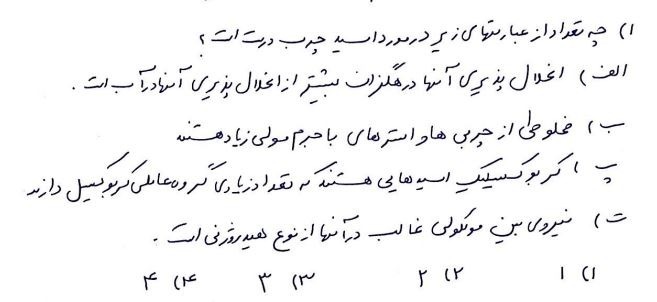 ۱) چه تعداد از عبارتهای زیر در مورد اسید چرب درست است ؟
الف) انحلال پذیری آنها در هگزان بیشتر از انحلال پذیری آنها در آب است .
ب) مخلوطی از چربی ها و استرهای با جرم مولی زیاد هستند
پ) کربوکسیلیک اسیدهایی هستند که تعداد زیادی گروه عاملی کربوکسیل دارند
ت) نیروی بین مولکولی غالب در آنها از نوع هیدروژنی است .
۱) ۱ ۲) ۲ ۳) ۳ ۴) ۴